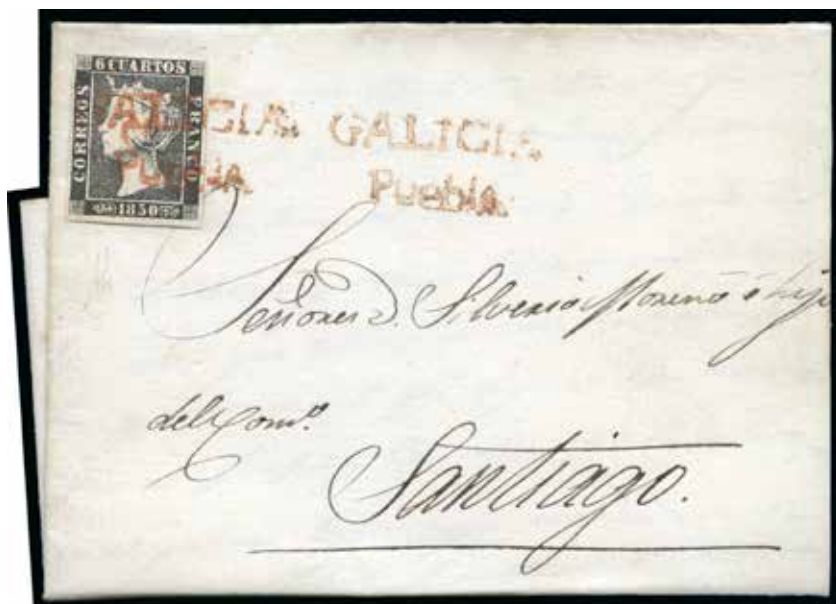 6 CUARTOS
CORREOS
FRANCO
1850
GALICIA.
Puebla.
GALICIA.
Puebla.
Señores D. Silverio Moreno é hijo
del Com.º
Santiago.